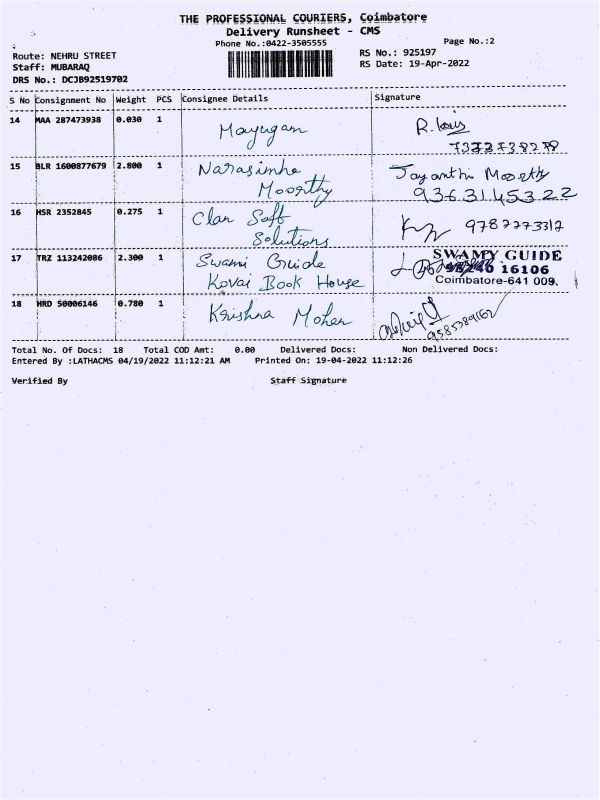 THE PROFESSIONAL COURIERS, Coimbatore
Delivery Runsheet - CMS
Phone No.:0422-3505555
Page No.:2
Route: NEHRU STREET
RS No.: 925197
Staff: MUBARAQ
RS Date: 19-Apr-2022
DRS No.: DCJB92519702
S No Consignment No Weight PCS Consignee Details Signature
14 MAA 287473938 0.030 1 Mayugam R. Louis
15 BLR 1600877679 2.800 1 Narasimha Jayanthi Moorthy
Moorthy 9363145322
16 HSR 2352845 0.275 1 Clan Soft 9787773312
Solutions
17 TRZ 113242086 2.300 1 Swami Guide SWAMY GUIDE
Kovai Book House 16106
Coimbatore-641 009.
18 HRD 50006146 0.780 1 Krishna Mohan
9585389162
Total No. Of Docs: 18 Total COD Amt: 0.00 Delivered Docs: Non Delivered Docs:
Entered By :LATHACMS 04/19/2022 11:12:21 AM Printed On: 19-04-2022 11:12:26
Verified By Staff Signature